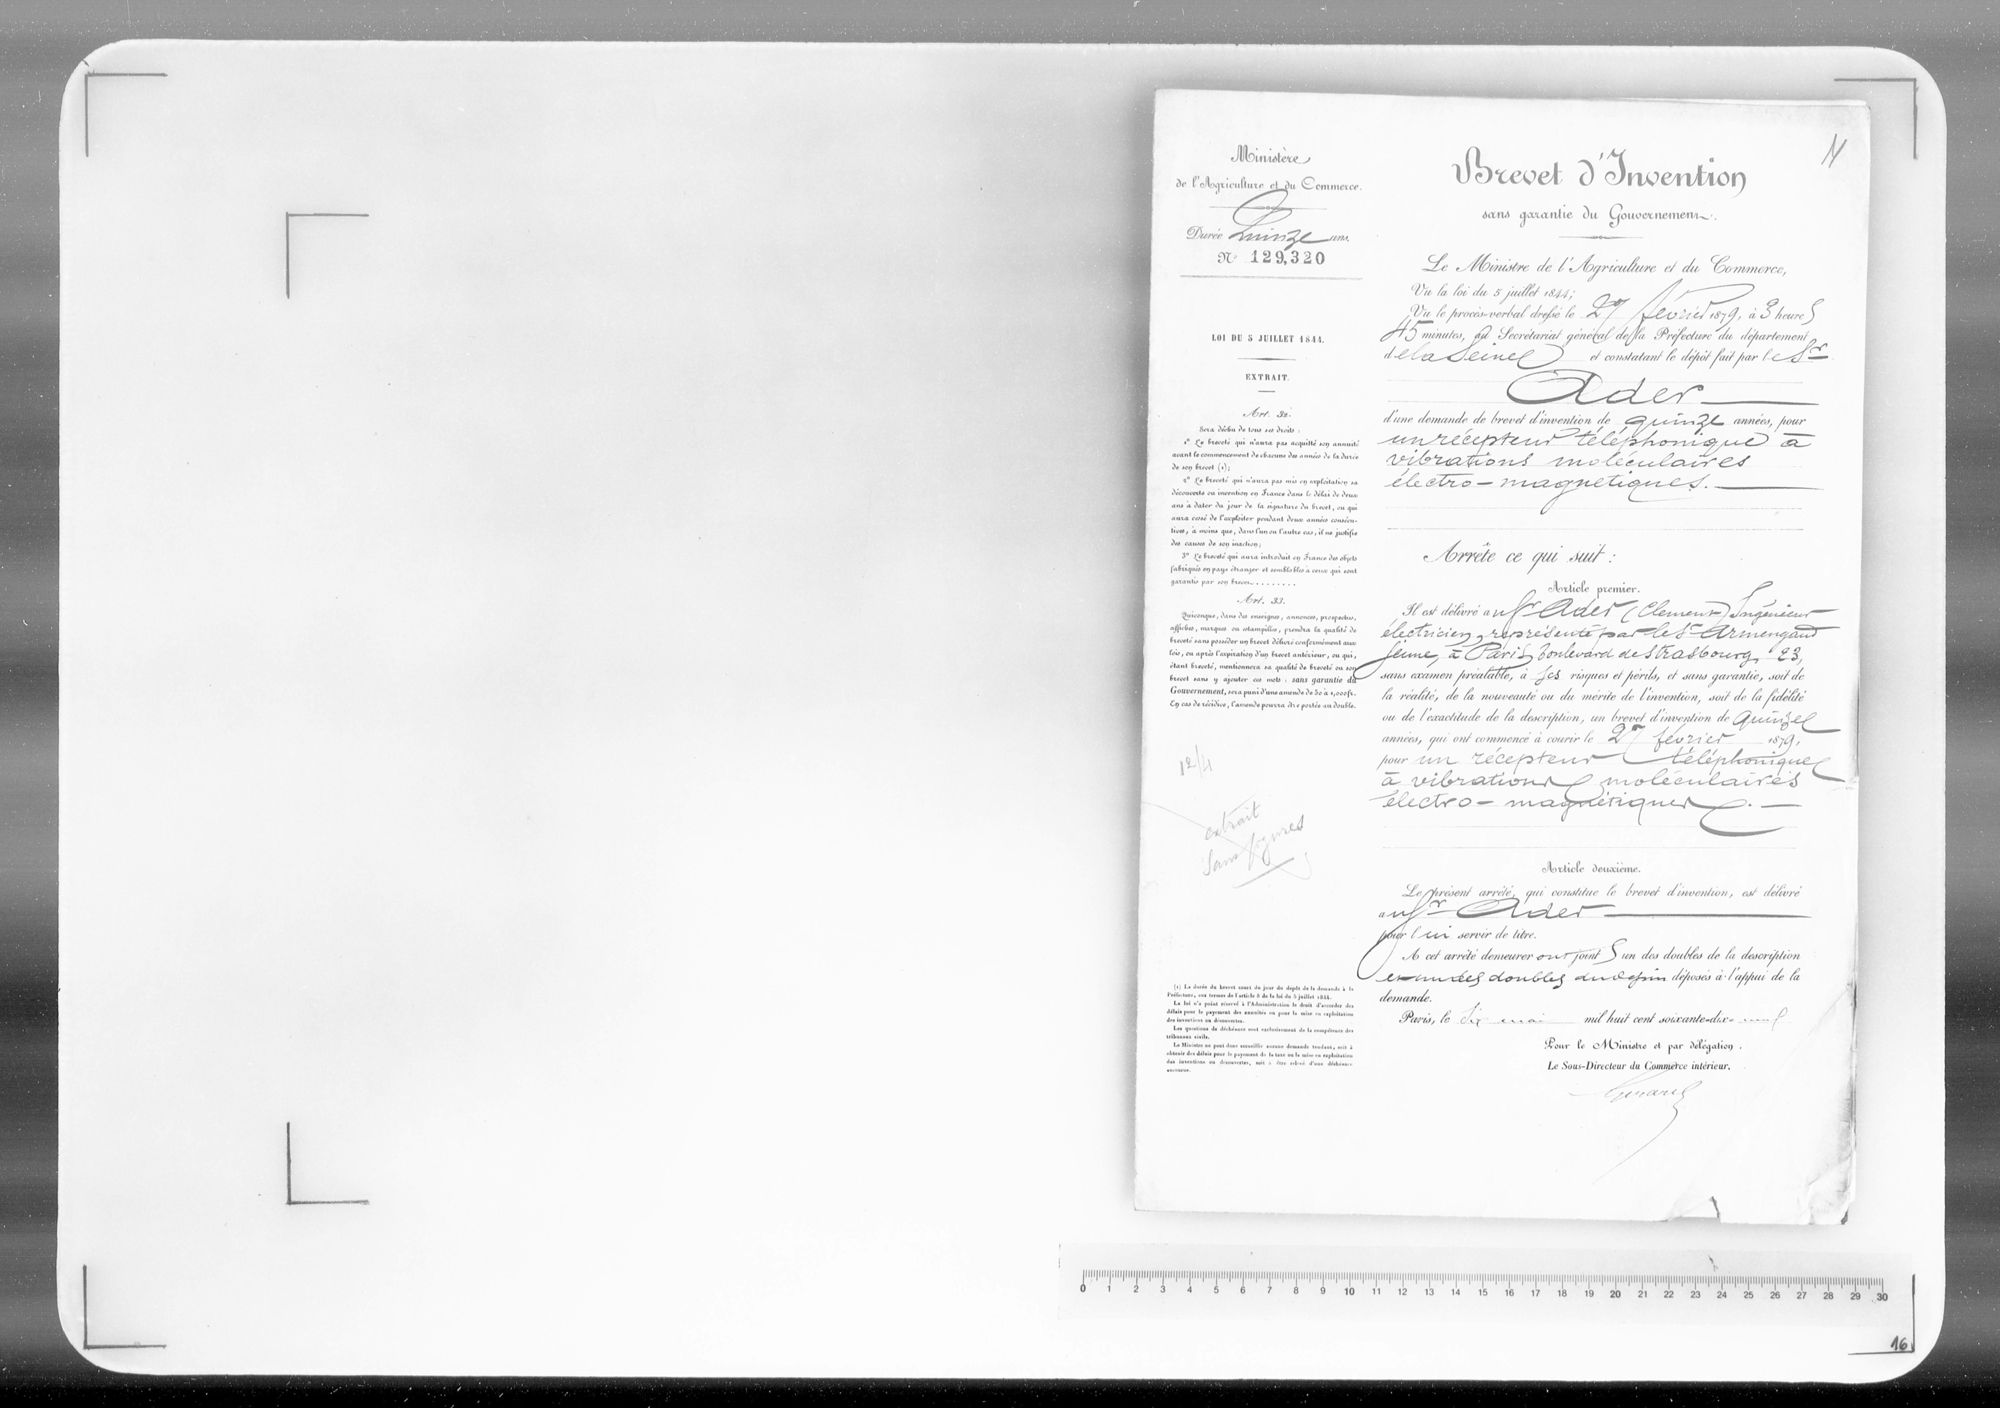 Ministère
de l'Agriculture et du Commerce.
Durée Quinze ans.
N° 129,320
LOI DU 5 JUILLET 1844.
EXTRAIT.
Art. 32.
Sera déchu de tous ses droits :
1° Le breveté qui n'aura pas acquitté son annuité
avant le commencement de chacune des années de la durée
de son brevet (1);
2° Le breveté qui n'aura pas mis en exploitation sa
découverte ou invention en France dans le délai de deux
ans à dater du jour de la signature du brevet, ou qui
aura cessé de l'exploiter pendant deux années consécu-
tives, à moins que, dans l'un ou l'autre cas, il ne justifie
des causes de son inaction;
3° Le breveté qui aura introduit en France des objets
fabriqués en pays étranger et semblables à ceux qui sont
garantis par son brevet.........
Art. 33.
Quiconque, dans des enseignes, annonces, prospectus,
affiches, marques ou estampilles, prendra la qualité de
breveté sans posséder un brevet délivré conformément aux
lois, ou après l'expiration d'un brevet antérieur, ou qui,
étant breveté, mentionnera sa qualité de breveté ou son
brevet sans y ajouter ces mots : sans garantie du
Gouvernement, sera puni d'une amende de 50 à 1,000 fr.
En cas de récidive, l'amende pourra être portée au double.
12/4
extrait
sans figures
(1) La durée du brevet court du jour du dépôt de la demande à la
Préfecture, aux termes de l'article 8 de la loi du 5 juillet 1844.
La loi n'a point réservé à l'Administration le droit d'accorder des
délais pour le payement des annuités ou pour la mise en exploitation
des inventions ou découvertes.
Les questions de déchéance sont exclusivement de la compétence des
tribunaux civils.
Le Ministre ne peut donc accueillir aucune demande tendant, soit à
obtenir des délais pour le payement de la taxe ou la mise en exploitation
des inventions ou découvertes, soit à être relevé d'une déchéance
encourue.
Brevet d'Invention
sans garantie du Gouvernement.
Le Ministre de l'Agriculture et du Commerce,
Vu la loi du 5 juillet 1844;
Vu le procès-verbal dressé le 27 février 1879, à 3 heures
45 minutes, au Secrétariat général de la Préfecture du département
de la Seine et constatant le dépôt fait par le Sr
Ader
d'une demande de brevet d'invention de quinze années, pour
un récepteur téléphonique à
vibrations moléculaires
électro-magnétiques.
Arrête ce qui suit :
Article premier.
Il est délivré au Sr Ader (Clément) Ingénieur
électricien, représenté par le Sr Armengaud
jeune, à Paris, boulevard de Strasbourg, 23,
sans examen préalable, à ses risques et périls, et sans garantie, soit de
la réalité, de la nouveauté ou du mérite de l'invention, soit de la fidélité
ou de l'exactitude de la description, un brevet d'invention de quinze
années, qui ont commencé à courir le 27 février 1879,
pour un récepteur téléphonique
à vibrations moléculaires
électro-magnétiques.
Article deuxième.
Le présent arrêté, qui constitue le brevet d'invention, est délivré
au Sr Ader
pour lui servir de titre.
A cet arrêté demeureront joints un des doubles de la description
et un des doubles du dessin déposés à l'appui de la
demande.
Paris, le six mai mil huit cent soixante-dix-neuf
Pour le Ministre et par délégation.
Le Sous-Directeur du Commerce intérieur,
0 1 2 3 4 5 6 7 8 9 10 11 12 13 14 15 16 17 18 19 20 21 22 23 24 25 26 27 28 29 30
16